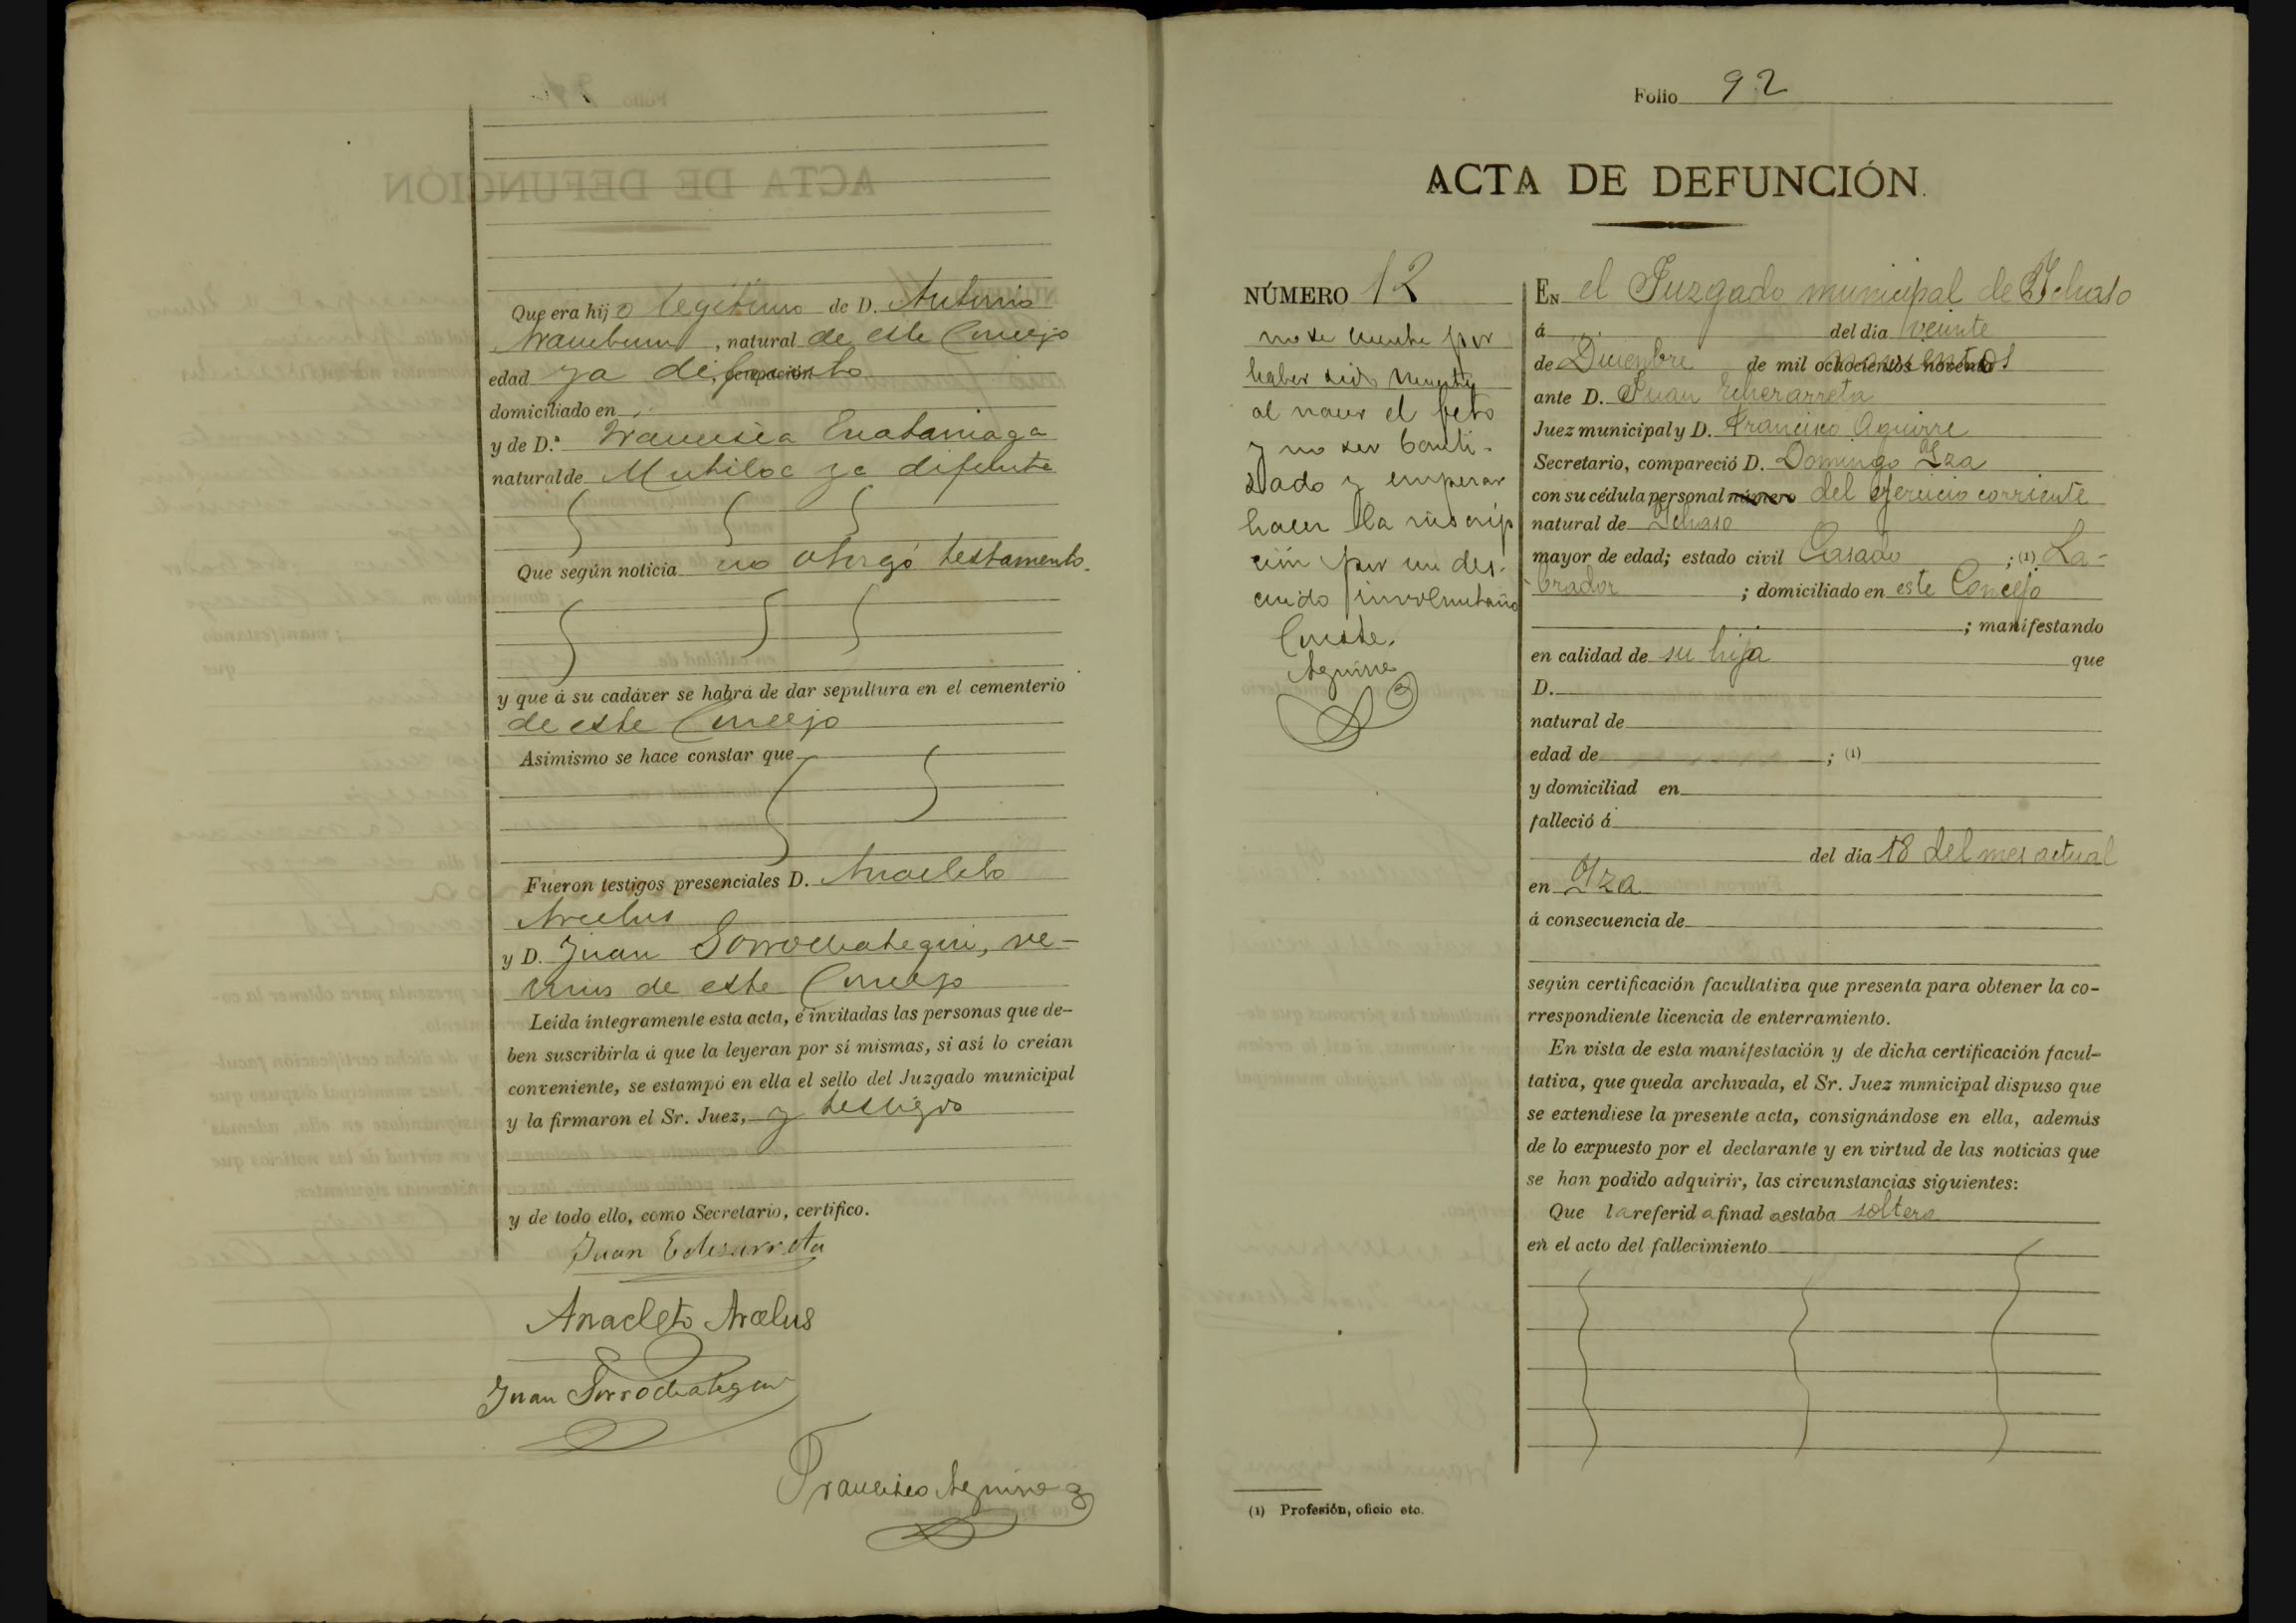 Que era hijo legitimo de D. Antonio
Aramburu, natural de este Concejo
edad ya difunto, ocupación
domiciliado en
y de D.ª Francisca
natural de Mutiloa ya difunta
Que según noticia no otorgó testamento.
y que á su cadáver se habrá de dar sepultura en el cementerio
de este Concejo
Asimismo se hace constar que
Fueron testigos presenciales D. Anacleto
Arcelus
y D. Juan Sorrochategui, ve-
cinos de este Concejo
Leída íntegramente esta acta, é invitadas las personas que de-
ben suscribirla á que la leyeran por sí mismas, si así lo creían
conveniente, se estampó en ella el sello del Juzgado municipal
y la firmaron el Sr. Juez, y testigos
y de todo ello, como Secretario, certifico.
Juan Echezarreta
Anacleto Arcelus
Juan Sorrochategui
Francisco Aguirre
Folio 92
ACTA DE DEFUNCIÓN.
NÚMERO 12
no se cuenta por
haber sido muerta
al nacer el feto
y no ser bauti-
zado y empezar
hacer la inscrip
ción por un des-
cuido involuntario
Conste.
Aguirre
EN el Juzgado municipal de Ychaso
á del día veinte
de Diciembre de mil ochocientos noventa novecientos
ante D. Juan Echezarreta
Juez municipal y D. Francisco Aguirre
Secretario, compareció D. Domingo Yza
con su cédula personal número del ejercicio corriente
natural de Ychaso
mayor de edad; estado civil Casado ; (1) La-
brador ; domiciliado en este Concejo
; manifestando
en calidad de su hija que
D.
natural de
edad de ; (1)
y domiciliad en
falleció á
del día 18 del mes actual
en Yza
á consecuencia de
según certificación facultativa que presenta para obtener la co-
rrespondiente licencia de enterramiento.
En vista de esta manifestación y de dicha certificación facul-
tativa, que queda archivada, el Sr. Juez municipal dispuso que
se extendiese la presente acta, consignándose en ella, además
de lo expuesto por el declarante y en virtud de las noticias que
se han podido adquirir, las circunstancias siguientes:
Que la referida finada estaba soltera
en el acto del fallecimiento
(1) Profesión, oficio etc.